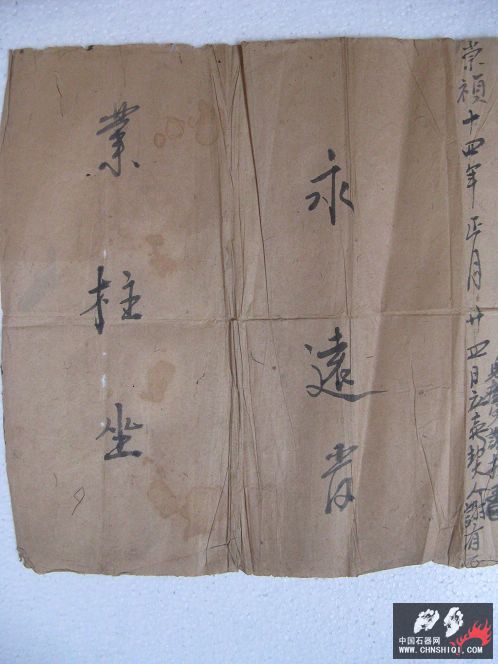 崇禎十四年正月廿四日立賣契人謝有
永遠管
業柱坐
中国石器网
WWW.CHNSHIQI.COM